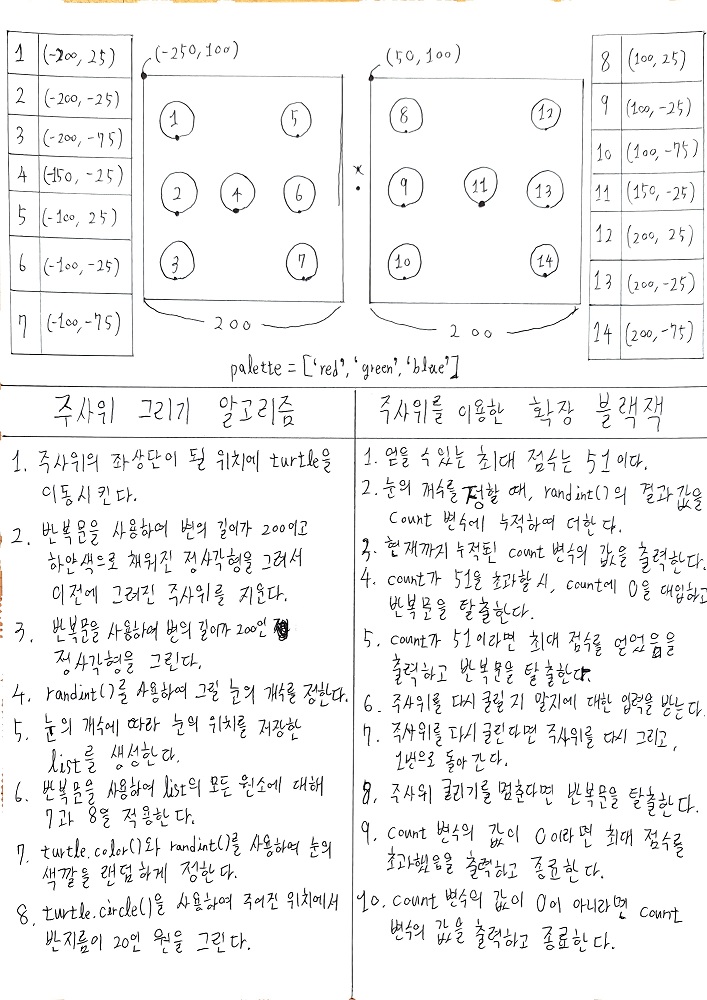 1 (-200, 25)
2 (-200, -25)
3 (-200, -75)
4 (-150, -25)
5 (-100, 25)
6 (-100, -25)
7 (-100, -75)
(-250, 100)
1 5
2 4 6
3 7
200
(50, 100)
8 12
9 11 13
10 14
200
8 (100, 25)
9 (100, -25)
10 (100, -75)
11 (150, -25)
12 (200, 25)
13 (200, -25)
14 (200, -75)
palette = ['red', 'green', 'blue']
주사위 그리기 알고리즘
1. 주사위의 좌상단이 될 위치에 turtle을
이동시킨다.
2. 반복문을 사용하여 변의 길이가 200이고
하얀색으로 채워진 정사각형을 그려서
이전에 그려진 주사위를 지운다.
3. 반복문을 사용하여 변의 길이가 200인
정사각형을 그린다.
4. randint()를 사용하여 그릴 눈의 개수를 정한다.
5. 눈의 개수에 따라 눈의 위치를 저장한
list를 생성한다.
6. 반복문을 사용하여 list의 모든 원소에 대해
7과 8을 적용한다.
7. turtle.color()와 randint()를 사용하여 눈의
색깔을 랜덤하게 정한다.
8. turtle.circle()을 사용하여 주어진 위치에서
반지름이 20인 원을 그린다.
주사위를 이용한 확장 블랙잭
1. 얻을 수 있는 최대 점수는 51이다.
2. 눈의 개수를 정할 때, randint()의 결과값을
count 변수에 누적하여 더한다.
3. 현재까지 누적된 count 변수의 값을 출력한다.
4. count가 51을 초과할 시, count에 0을 대입하고
반복문을 탈출한다.
5. count가 51이라면 최대 점수를 얻었음을
출력하고 반복문을 탈출한다.
6. 주사위를 다시 굴릴 지 말지에 대한 입력을 받는다.
7. 주사위를 다시 굴린다면 주사위를 다시 그리고,
1번으로 돌아간다.
8. 주사위 굴리기를 멈춘다면 반복문을 탈출한다.
9. count 변수의 값이 0이라면 최대 점수를
초과했음을 출력하고 종료한다.
10. count 변수의 값이 0이 아니라면 count
변수의 값을 출력하고 종료한다.